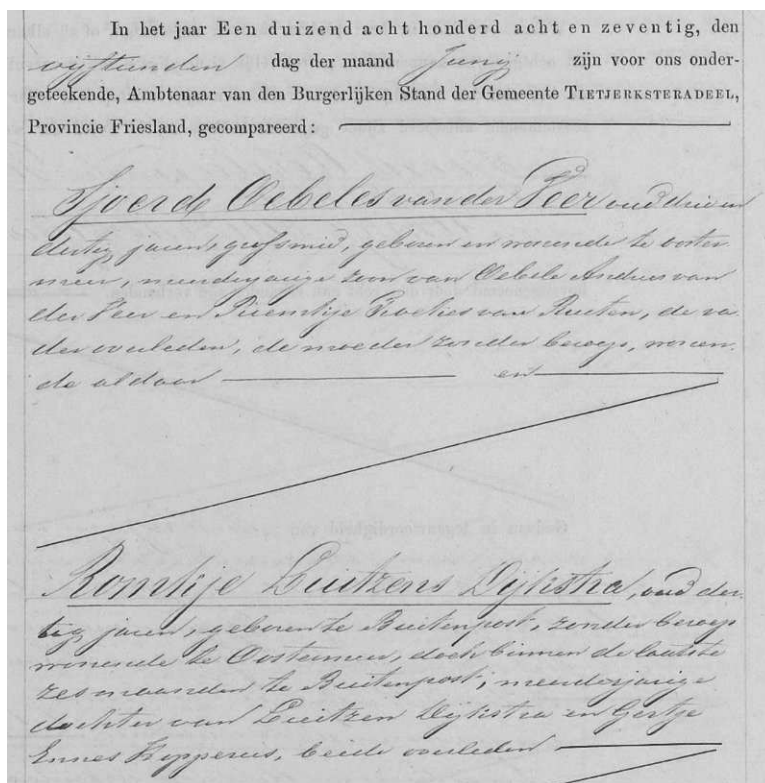 In het jaar Een duizend acht honderd acht en zeventig, den
vijftienden dag der maand Junij zijn voor ons onder-
geteekende, Ambtenaar van den Burgerlijken Stand der Gemeente TIETJERKSTERADEEL,
Provincie Friesland, gecompareerd:
Sjoerd Oebeles van der Veer oud drie en
dertig jaren, grofsmid, geboren en wonende te Ooster
meer, meerderjarige zoon van Oebele Andries van
der Veer en Riemkje van Ruiten, de va
der overleden, de moeder zonder beroep, wonen
de aldaar en
Romkje Luitzens Dijkstra, oud der
tig jaren, geboren te Buitenpost, zonder beroep
wonende te Oostermeer, doch binnen de laatste
zes maanden te Buitenpost, meerderjarige
dochter van Luitzen Dijkstra en Gertje
Ennes Kopperus, beide overleden